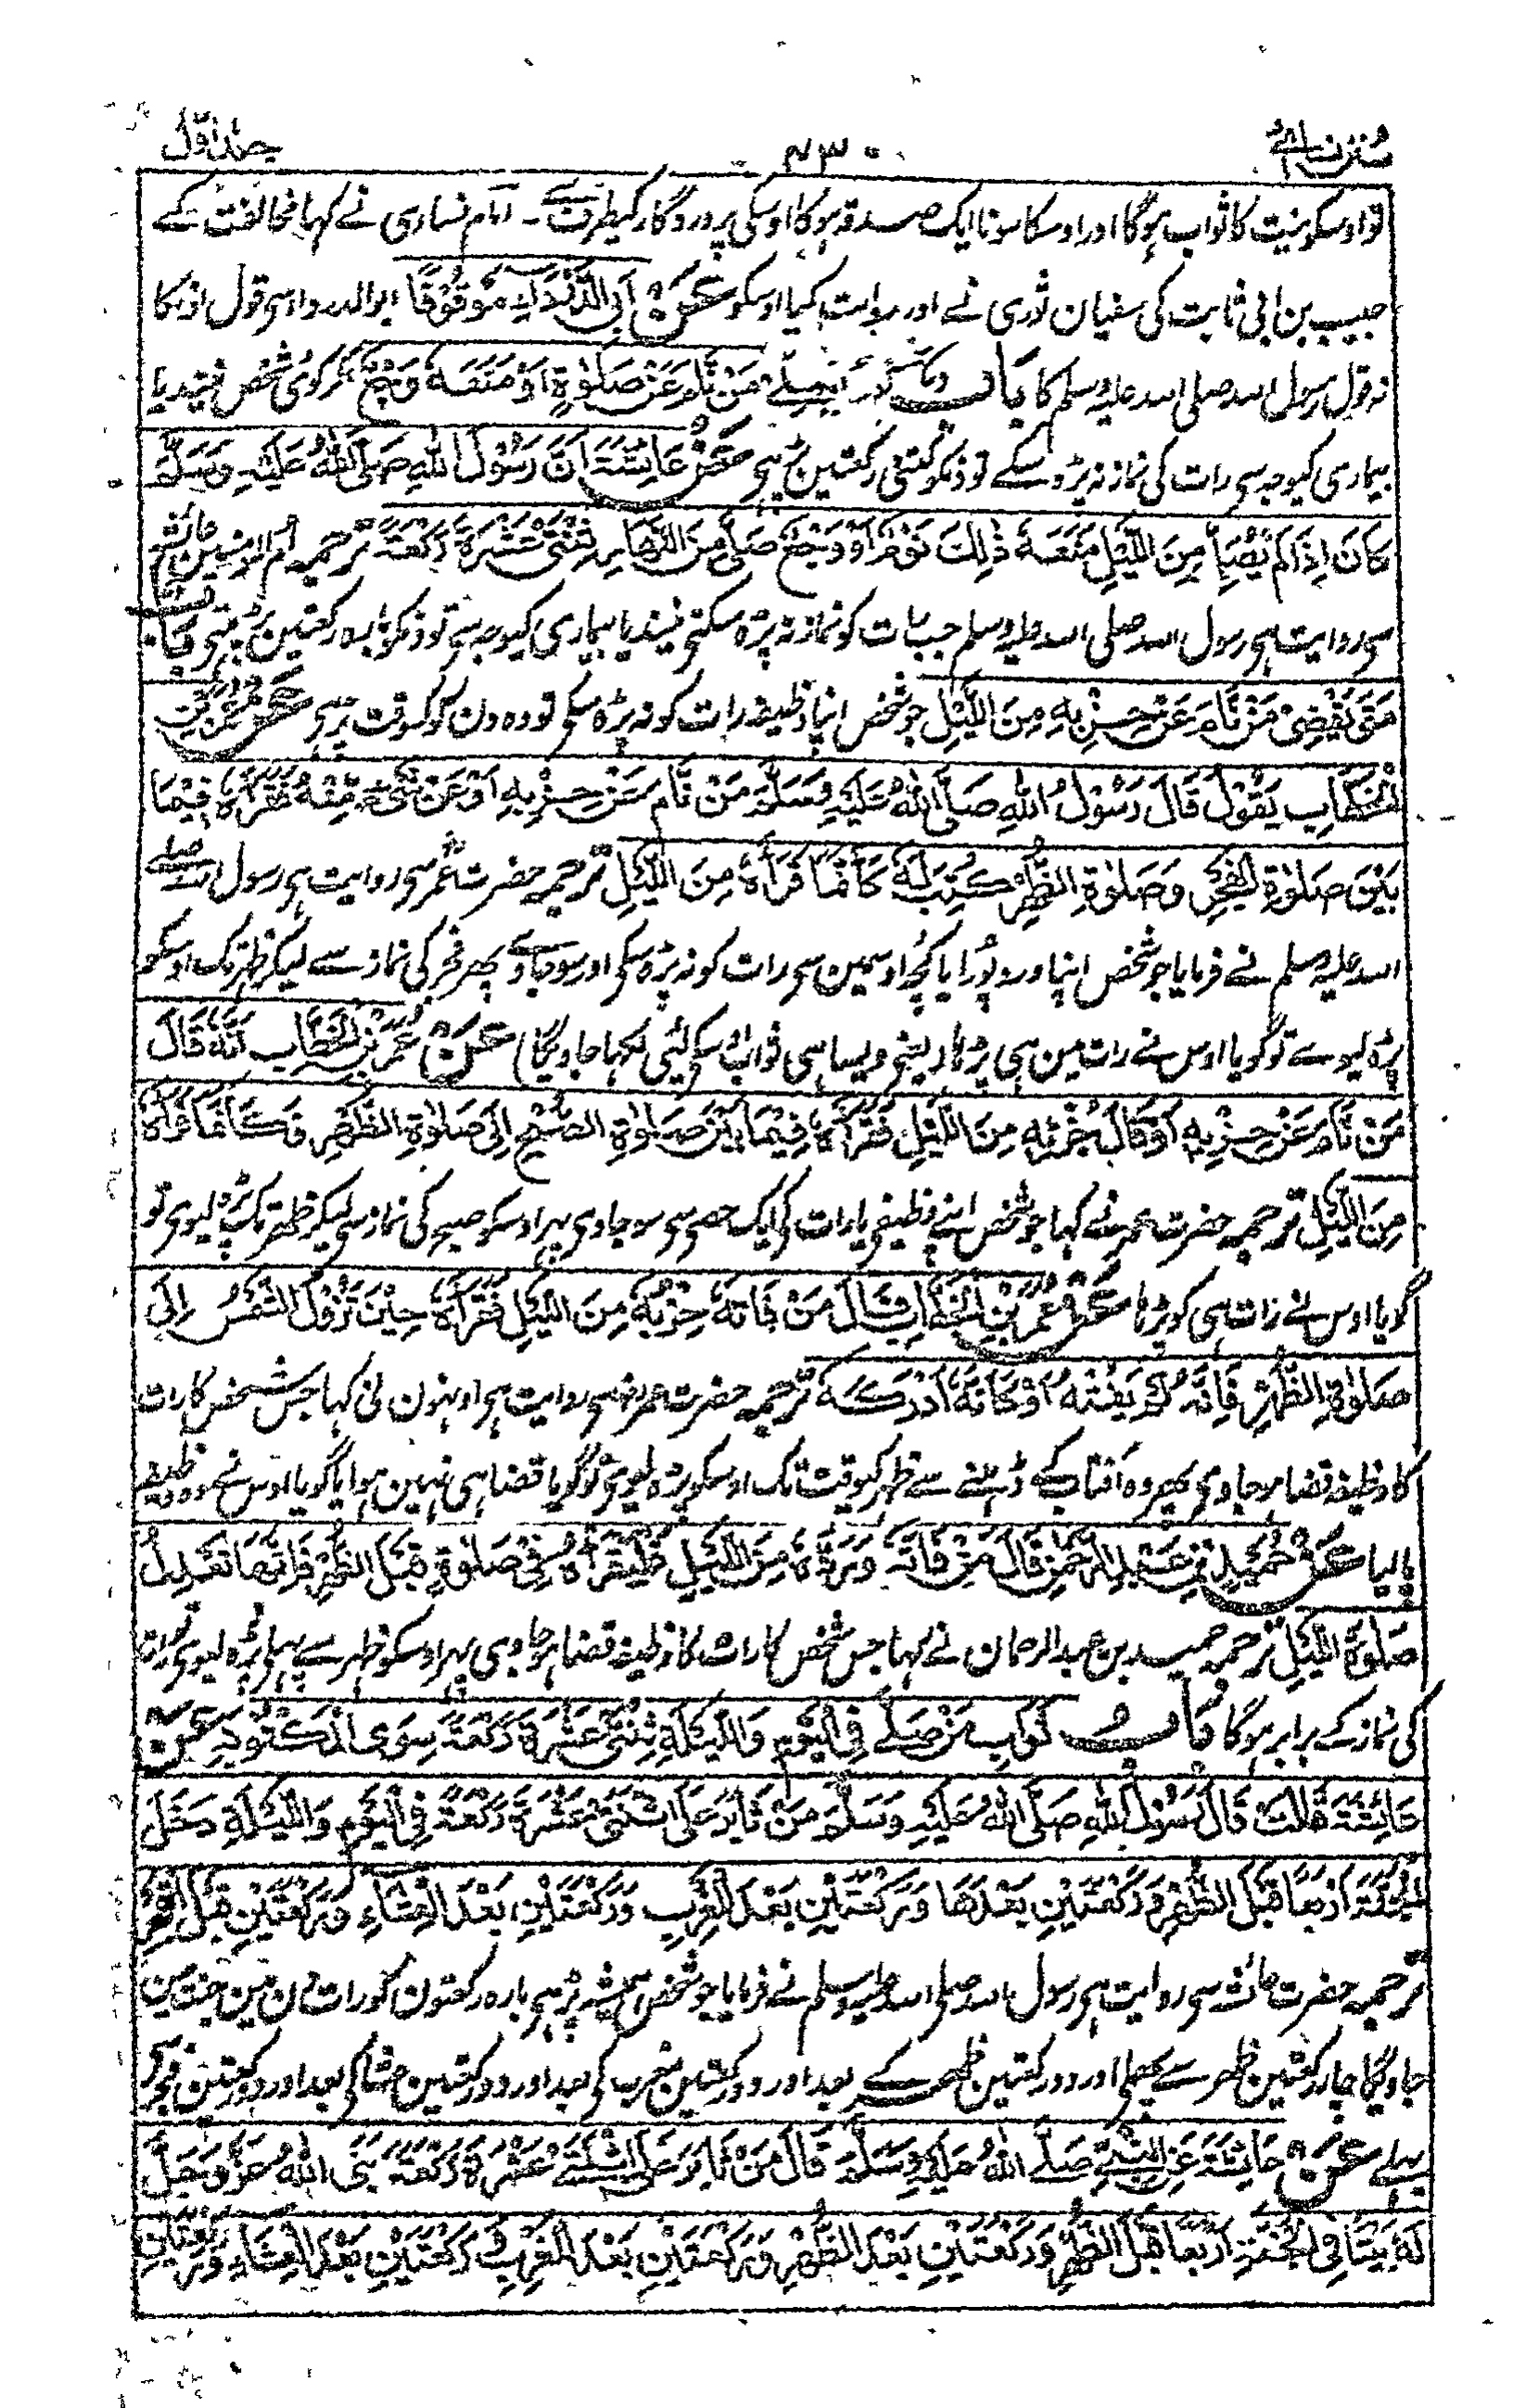 سنن نسائی
۴۳۰
جلد اول
تو اوسکو نیت کا ثواب ہوگا اور اوسکا سونا ایک صدقہ ہوگا اوسکی پروردگار کیطرف سے ۔ امام نسای نے کہا مخالفت کے
حبیب بن ابی ثابت کی سفیان ثوری نے اور روایت کیا اوسکو عَنْ أَبِي الدَّرْدَاءِ مَوْقُوْفًا ابوالدرداسی قول اونکا
نہ قول رسول اللہ صلی اللہ علیہ وسلم کا بَابُ كَمْ يُصَلِّيْ مَنْ نَّامَ عَنْ صَلٰوةٍ اَوْ مَنَعَهٗ وَجَعٌ اگر کوی شخص نیند یا
بیماری کیوجہ سی رات کی نماز نہ پڑہ سکے تو دنکو کتنی رکعتین پڑہی عَنْ عَائِشَةَ اَنَّ رَسُوْلَ اللهِ صَلَّى اللهُ عَلَيْهِ وَسَلَّمَ
كَانَ اِذَا لَمْ يُصَلِّ مِنَ اللَّيْلِ مَنَعَهٗ ذٰلِكَ نَوْمٌ اَوْ وَجَعٌ صَلّٰى مِنَ النَّهَارِ ثِنْتَيْ عَشْرَةَ رَكْعَةً ترجمہ ام المومنین عائشہ
سی روایت ہی رسول اللہ صلی اللہ علیہ وسلم جب رات کو نماز نہ پڑہ سکتی نیند یا بیماری کیوجہ سی تو دنکو بارہ رکعتین پڑہتی بَابُ
مَتٰى يَقْضِيْ مَنْ نَّامَ عَنْ حِزْبِهٖ مِنَ اللَّيْلِ جو شخص اپنا وظیفہ رات کو نہ پڑہ سکی تو وہ دن کو کسوقت پڑہی عَنْ عُمَرَ بْنَ
الْخَطَّابِ يَقُوْلُ قَالَ رَسُوْلُ اللهِ صَلَّى اللهُ عَلَيْهِ وَسَلَّمَ مَنْ نَّامَ عَنْ حِزْبِهٖ اَوْ عَنْ شَيْءٍ مِّنْهُ فَقَرَاَهٗ فِيْمَا
بَيْنَ صَلٰوةِ الْفَجْرِ وَصَلٰوةِ الظُّهْرِ كُتِبَ لَهٗ كَاَنَّمَا قَرَاَهٗ مِنَ اللَّيْلِ ترجمہ حضرت عمر سی روایت ہی رسول اللہ صلے
اللہ علیہ وسلم نے فرمایا جو شخص اپنا ورد پورا یا کچہ اوسمین سی رات کو نہ پڑہ سکی اور سو جاوے پھر فجر کی نماز سے لیکر ظہر تک اوسکو
پڑہ لیوے تو گویا اوس نے رات مین ہی پڑہا (یعنی ویسا ہی ثواب اوسکی لئی لکہا جاویگا) عَنْ عُمَرَ بْنِ الْخَطَّابِ اَنَّهٗ قَالَ
مَنْ نَّامَ عَنْ حِزْبِهٖ اَوْ قَالَ جُزْئِهٖ مِنَ اللَّيْلِ فَقَرَاَهٗ فِيْمَا بَيْنَ صَلٰوةِ الصُّبْحِ اِلٰى صَلٰوةِ الظُّهْرِ فَكَاَنَّمَا قَرَاَهٗ
مِنَ اللَّيْلِ ترجمہ حضرت عمر نے کہا جو شخص اپنے وظیفی یا رات کی ایک حصی سی سو جاوی پہر اوسکو صبح کی نماز سی لیکر ظہر تک پڑہ لیوی تو
گویا اوس نے رات ہی کو پڑہا عَنْ عُمَرَ بْنِ الْخَطَّابِ قَالَ مَنْ فَاتَهٗ حِزْبُهٗ مِنَ اللَّيْلِ فَقَرَاَهٗ حِيْنَ تَزُوْلُ الشَّمْسُ اِلٰى
صَلٰوةِ الظُّهْرِ فَاِنَّهٗ لَمْ يَفُتْهُ اَوْ كَاَنَّهٗ اَدْرَكَهٗ ترجمہ حضرت عمر سی روایت ہی اونہون نی کہا جس شخص کا رات
کا وظیفہ قضا ہو جاوی پھر وہ آفتاب کے ڈہلنے سے ظہر کیوقت تک اوسکو پڑہ لیوی تو گویا قضا ہی نہین ہوا یا گویا اوس نے وہ وظیفہ
پا لیا عَنْ حُمَيْدِ بْنِ عَبْدِ الرَّحْمٰنِ قَالَ مَنْ فَاتَهٗ وِرْدُهٗ مِنَ اللَّيْلِ فَلْيَقْرَاْهُ فِيْ صَلٰوةٍ قَبْلَ الظُّهْرِ فَاِنَّهَا تَعْدِلُ
صَلٰوةَ اللَّيْلِ ترجمہ حمید بن عبدالرحمان نے کہا جس شخص کا رات کا وظیفہ قضا ہو جاوی پہر اوسکو ظہر سے پہلی پڑہ لیوی تو رات
کی نماز کے برابر ہوگا بَابُ ثَوَابِ مَنْ صَلّٰى فِي الْيَوْمِ وَاللَّيْلَةِ ثِنْتَيْ عَشْرَةَ رَكْعَةً سِوَى الْمَكْتُوْبَةِ عَنْ
عَائِشَةَ قَالَتْ قَالَ رَسُوْلُ اللهِ صَلَّى اللهُ عَلَيْهِ وَسَلَّمَ مَنْ ثَابَرَ عَلَى اثْنَتَيْ عَشْرَةَ رَكْعَةً فِي الْيَوْمِ وَاللَّيْلَةِ دَخَلَ
الْجَنَّةَ اَرْبَعًا قَبْلَ الظُّهْرِ وَرَكْعَتَيْنِ بَعْدَهَا وَرَكْعَتَيْنِ بَعْدَ الْمَغْرِبِ وَرَكْعَتَيْنِ بَعْدَ الْعِشَاءِ وَرَكْعَتَيْنِ قَبْلَ الْفَجْرِ
ترجمہ حضرت عائشہ سی روایت ہی رسول اللہ صلی اللہ علیہ وسلم نے فرمایا جو شخص ہمیشہ پڑہی بارہ رکعتون کو رات دن مین جنت مین
جاویگا چار رکعتین ظہر سے پہلی اور دو رکعتین ظہر کے بعد اور دو رکعتین مغرب کی بعد اور دو رکعتین عشا کی بعد اور دو رکعتین فجر سی
پہلے عَنْ عَائِشَةَ عَنِ النَّبِيِّ صَلَّى اللهُ عَلَيْهِ وَسَلَّمَ قَالَ مَنْ ثَابَرَ عَلَى اثْنَتَيْ عَشْرَةَ رَكْعَةً بَنَى اللهُ عَزَّ وَجَلَّ
لَهٗ بَيْتًا فِي الْجَنَّةِ اَرْبَعًا قَبْلَ الظُّهْرِ وَرَكْعَتَيْنِ بَعْدَ الظُّهْرِ وَرَكْعَتَيْنِ بَعْدَ الْمَغْرِبِ وَرَكْعَتَيْنِ بَعْدَ الْعِشَاءِ وَرَكْعَتَيْنِ